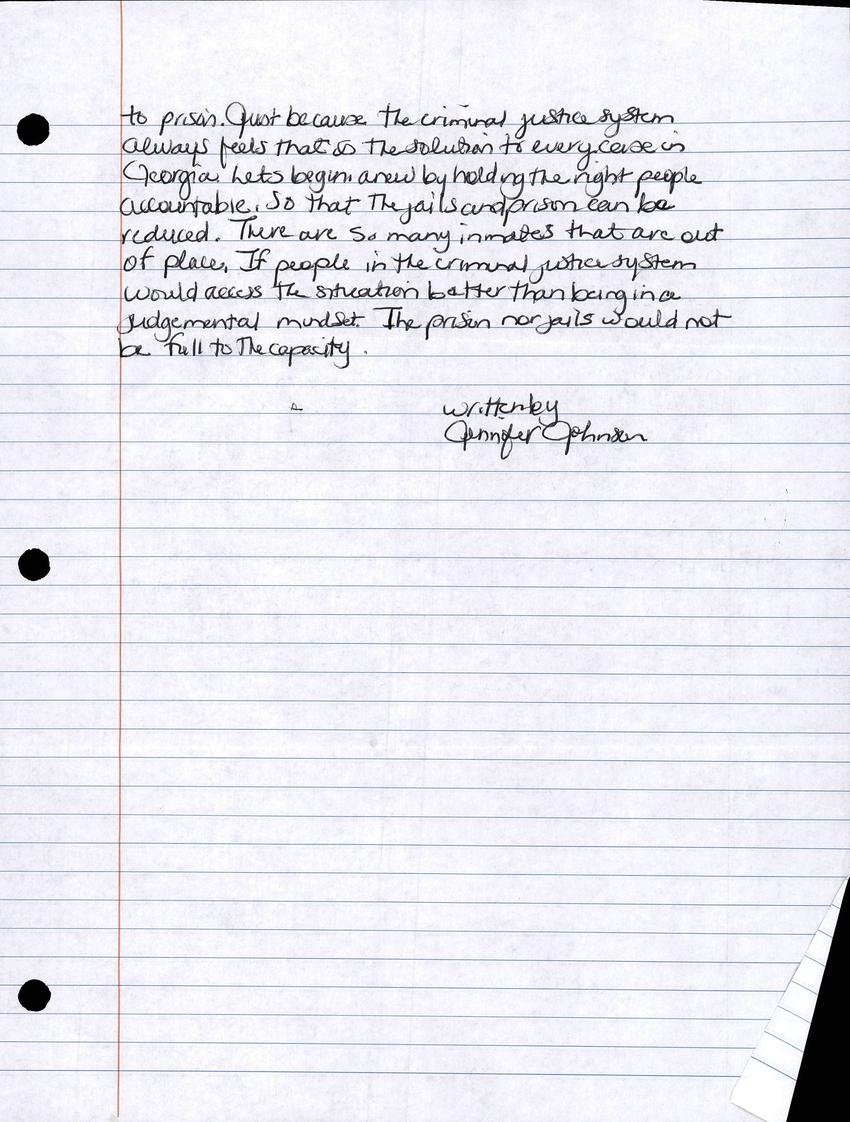 to prison. Just because the criminal justice system
always feels that is the solution to every case in
Georgia. Lets begin anew by holding the right people
accountable. So that the jails and prison can be
reduced. There are so many inmates that are out
of place. If people in the criminal justice system
would access the situation better than being in a
judgemental mindset. The prison nor jails would not
be full to the capacity.
written by
Jennifer Johnson